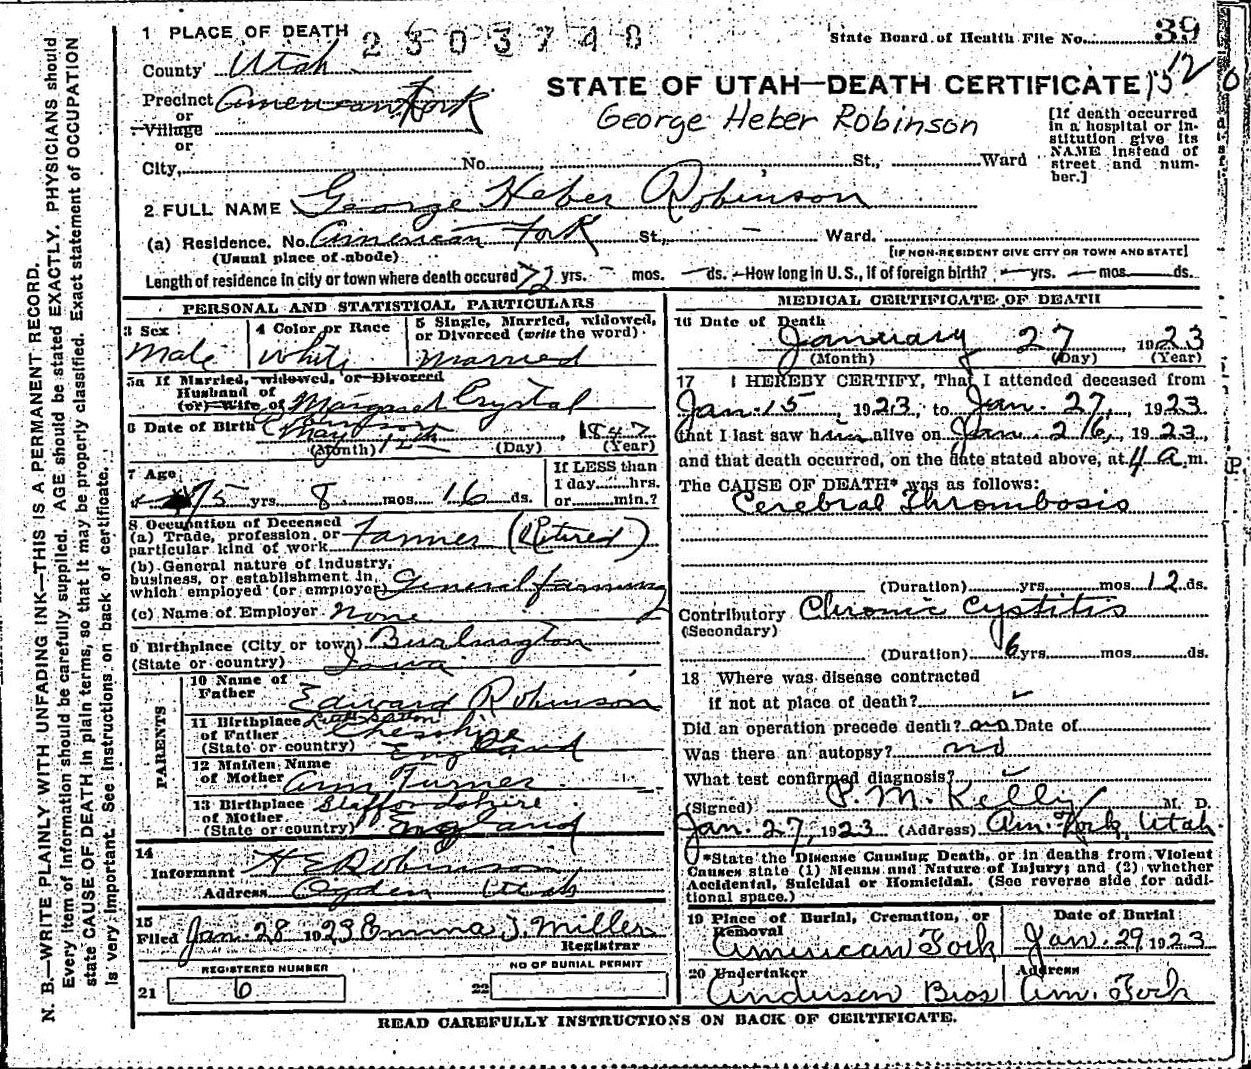 1 PLACE OF DEATH 2303748
State Board of Health File No. 39
County Utah
STATE OF UTAH—DEATH CERTIFICATE
Precinct American Fork
or
Village
or
George Heber Robinson
[If death occurred in a hospital or institution give its NAME instead of street and number.]
City, No. St., Ward
2 FULL NAME George Heber Robinson
(a) Residence. No. American Fork St., — Ward.
(Usual place of abode) [IF NON-RESIDENT GIVE CITY OR TOWN AND STATE]
Length of residence in city or town where death occured 72 yrs. – mos. – ds. –How long in U. S., if of foreign birth? — yrs. — mos. ds.
PERSONAL AND STATISTICAL PARTICULARS
3 Sex Male
4 Color or Race White
5 Single, Married, widowed, or Divorced (write the word) Married
5a If Married, widowed, or Divorced
Husband of
(or) Wife of Margaret Crystal
6 Date of Birth May 12th 1847
(Month) (Day) (Year)
7 Age 75 yrs. 8 mos. 16 ds.
If LESS than
1 day hrs.
or min.?
8 Occupation of Deceased
(a) Trade, profession, or
particular kind of work Farmer (Retired)
(b) General nature of industry,
business, or establishment in
which employed (or employer) General farming
(c) Name of Employer None
9 Birthplace (City or town) Burlington
(State or country) Iowa
PARENTS
10 Name of
Father Edward Robinson
11 Birthplace
of Father Cheshire
(State or country) England
12 Maiden Name
of Mother Ann Turner
13 Birthplace Staffordshire
of Mother
(State or country) England
14
Informant H E Robinson
Address Ogden Utah
15
Filed Jan. 28 1923 Emma J. Miller
Registrar
REGISTERED NUMBER
21 6
NO OF BURIAL PERMIT
22
MEDICAL CERTIFICATE OF DEATH
16 Date of Death
January 27 1923
(Month) (Day) (Year)
17 I HEREBY CERTIFY, That I attended deceased from
Jan. 15, 1923, to Jan. 27, 1923
that I last saw him alive on Jan. 26, 1923,
and that death occurred, on the date stated above, at 4 a.m.
The CAUSE OF DEATH* was as follows:
Cerebral Thrombosis
(Duration) yrs. mos. 12 ds.
Contributory Chronic Cystitis
(Secondary)
(Duration) 6 yrs. mos. ds.
18 Where was disease contracted
if not at place of death?
Did an operation precede death? no Date of
Was there an autopsy? no
What test confirmed diagnosis?
(Signed) P. M. Kelly M. D.
Jan. 27, 1923 (Address) Am. Fork, Utah.
*State the Disease Causing Death, or in deaths from Violent
Causes state (1) Means and Nature of Injury; and (2) whether
Accidental, Suicidal or Homicidal. (See reverse side for addi-
tional space.)
19 Place of Burial, Cremation, or
Removal
American Fork
Date of Burial
Jan. 29 1923
20 Undertaker
Anderson Bros
Address
Am. Fork
READ CAREFULLY INSTRUCTIONS ON BACK OF CERTIFICATE.
N. B.—WRITE PLAINLY WITH UNFADING INK—THIS IS A PERMANENT RECORD.
Every item of information should be carefully supplied. AGE should be stated EXACTLY. PHYSICIANS should
state CAUSE OF DEATH in plain terms, so that it may be properly classified. Exact statement of OCCUPATION
is very important. See instructions on back of certificate.